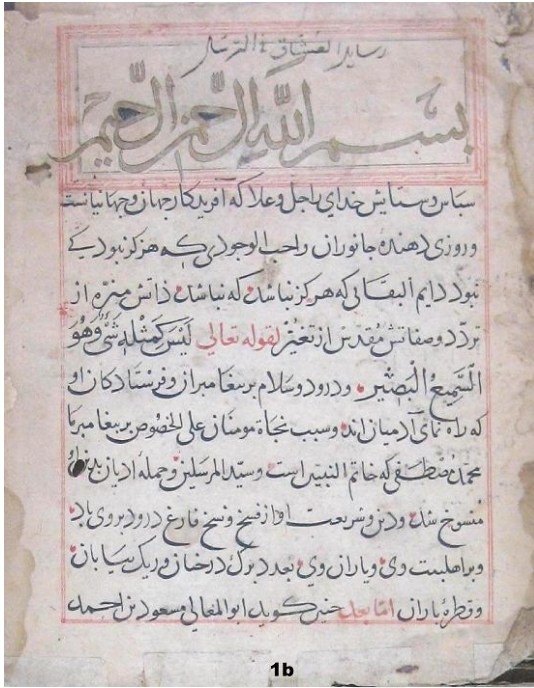 رسایل العشاق فی الترسل
بسم الله الرحمن الرحیم
سپاس وستایش خدای راجل وعلا که آفریدکار جهان وجهانیانست
وروزی دهندهٔ جانوران واجب الوجودی که هرکز نبود کی
نبود دایم البقائی که هرکز نباشد که نباشد ذاتش منزه از
تردد وصفاتش مقدس از تغیر لقوله تعالی لَیْسَ کَمِثْلِهِ شَیْءٌ وَهُوَ
السَّمِیعُ الْبَصِیر ودرود وسلام بر پیغامبران وفرستادکان او
که راه نمای آدمیان اند وسبب نجاة مومنان علی الخصوص بر پیغامبر ما
محمد مصطفی که خاتم النبیین است وسید المرسلین وجمله ادیان بدو
منسوخ شد ودین وشریعت او از فسخ ونسخ فارغ درود بر وی باد
وبر اهلبیت وی ویاران وی بعدد برک درختان وریک بیابان
وقطرهٔ باران اما بعد چنین کوید ابوالمعالی مسعود بن احمد
1b